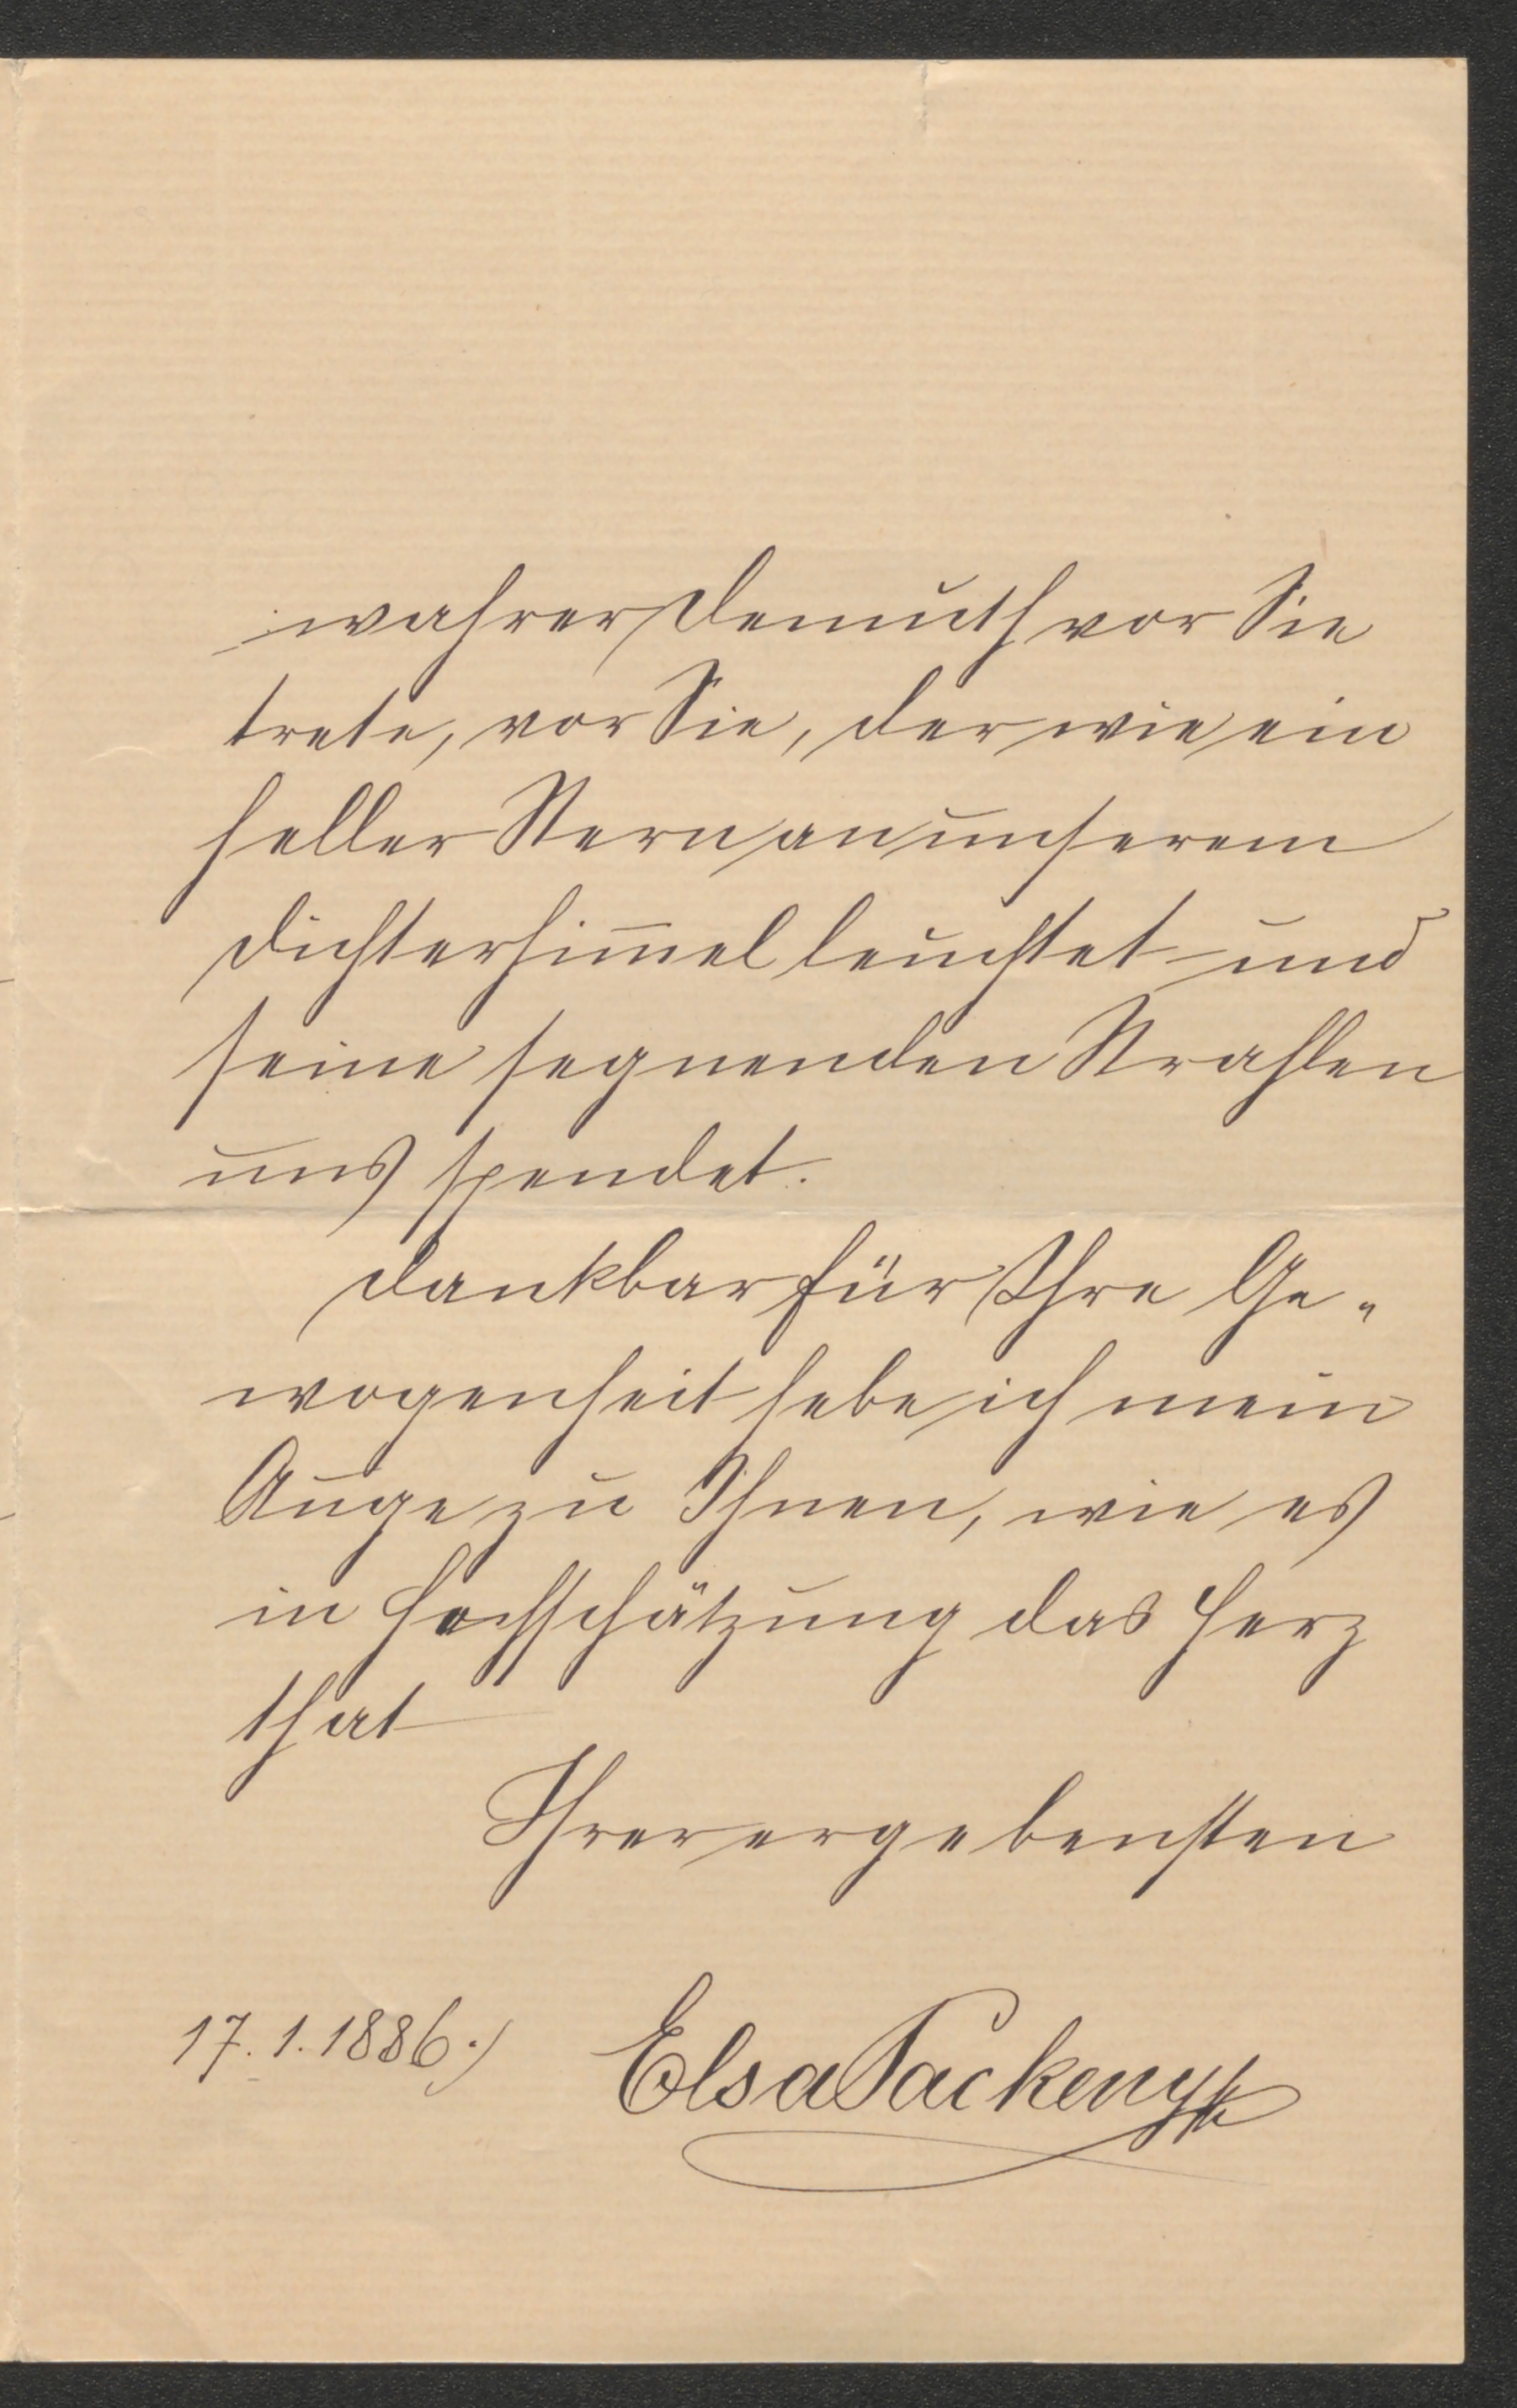 wahrer Demuth vor Sie
trete, vor Sie, der wie ein
heller Stern an unserem
Dichterhim̅el leuchtet und
seine segnenden Strahlen
uns spendet.
Dankbar für Ihre Ge-
wogenheit hebe ich mein
Auge zu Ihnen, wie es
in Hochschätzung das Herz
that
Ihrer ergebensten
17. 1. 1886.)
Elsa Packeny